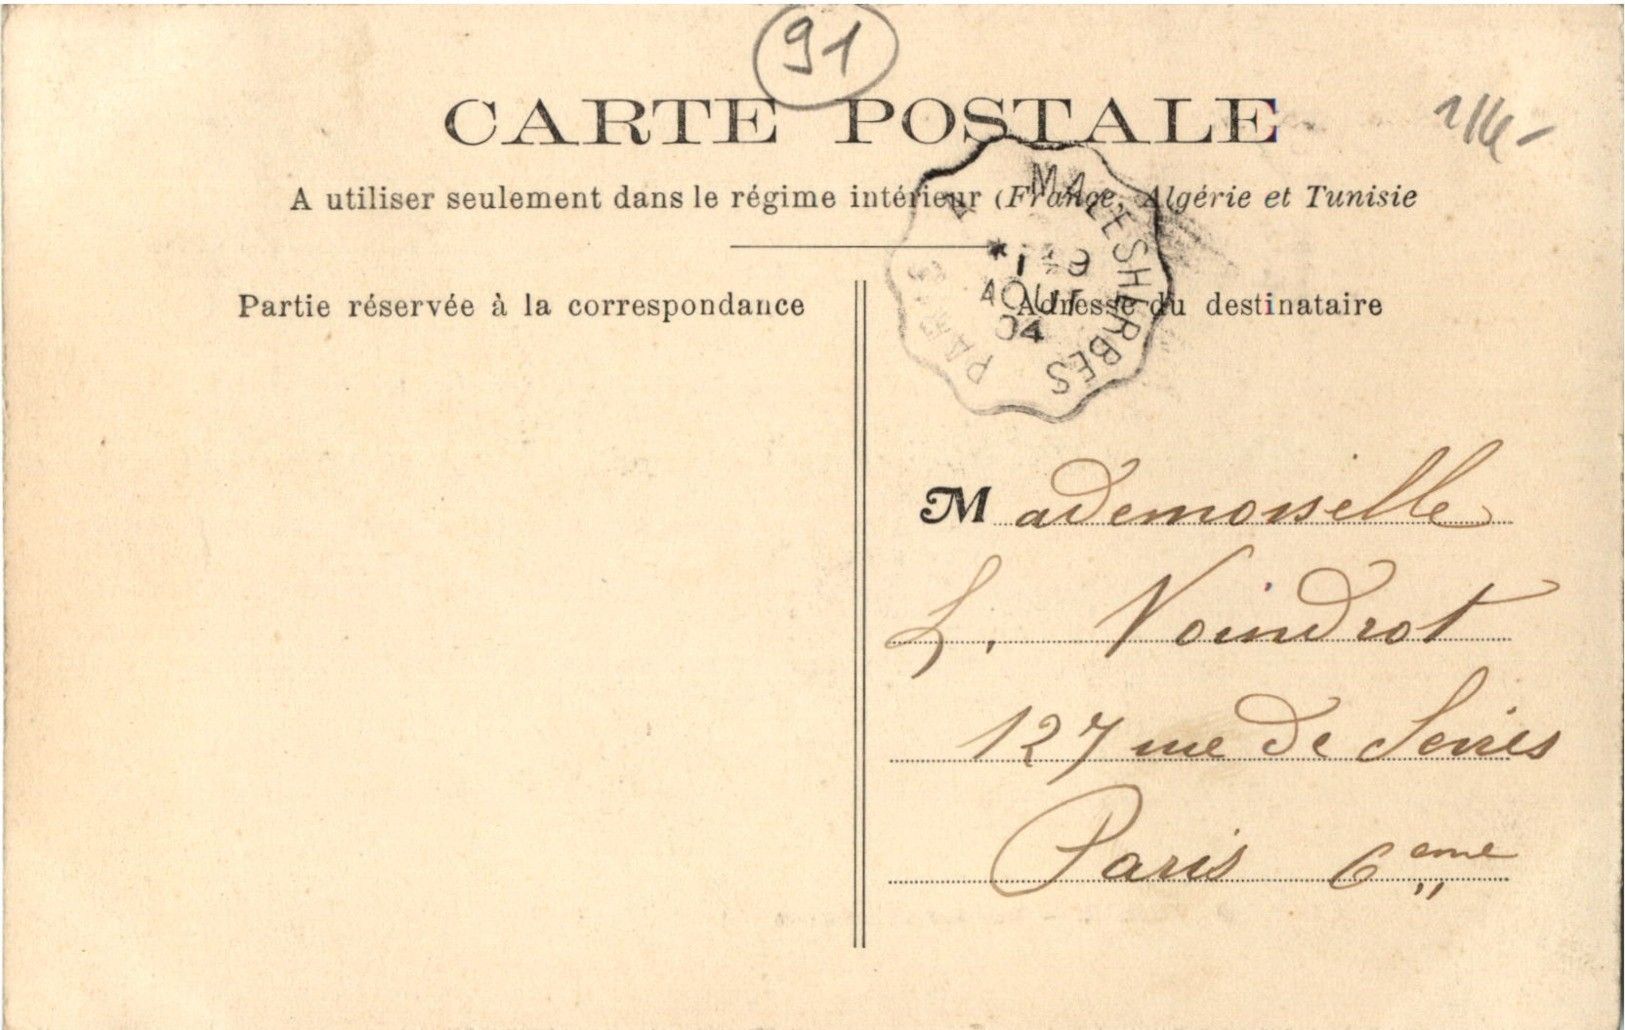 91
CARTE POSTALE
A utiliser seulement dans le régime intérieur (France, Algérie et Tunisie
Partie réservée à la correspondance
Adresse du destinataire
MALESHERBES
PARIS
AOUT
04
Mademoiselle
L. Voindrot
127 rue de Sèvres
Paris 6eme